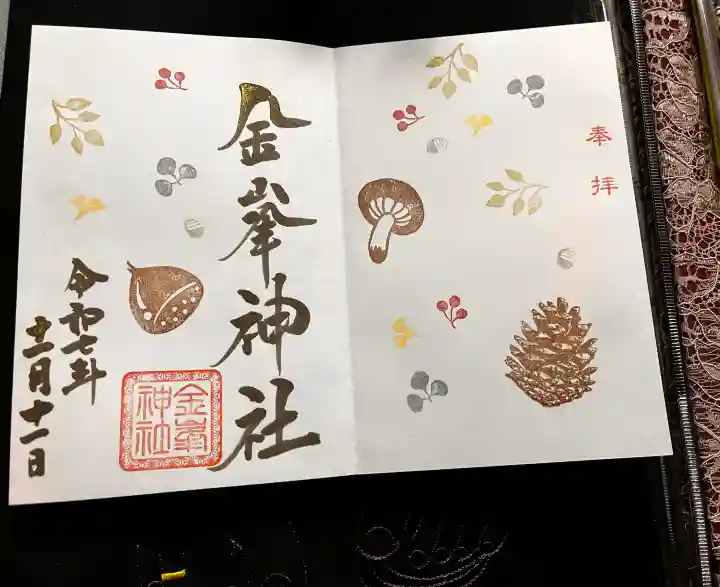 奉拝
金峯神社
金峯神社
令和七年
十一月十一日